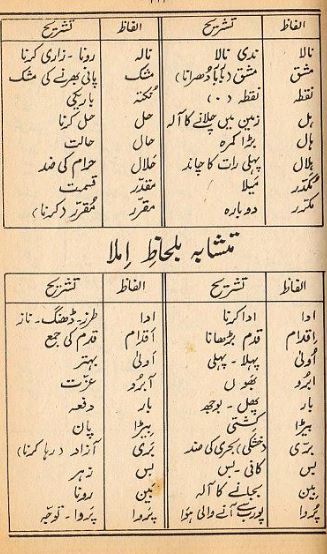 الفاظ تشریح الفاظ تشریح
نالا ندی نالا نالہ رونا - زاری کرنا
مشق مشق دُھرانا) مشک پانی بھرنے کی مشک
نقطہ نقطہ (۰) نُکتہ باریکی
ہل زمین میں چلانے کا آلہ حل حل کرنا
ہال بڑا کمرہ حال حالت
ہلال پہلی رات کا چاند حلال حرام کی ضد
مُکدّر مَیلا مقدّر قسمت
مکرّر دوبارہ مقرّر مُقرّر (کرنا)
متشابہ بلحاظِ اِملا
الفاظ تشریح الفاظ تشریح
ادا ادا کرنا ادا طرز - ڈھنگ - ناز
اِقدام قدم بڑھانا اَقدام قدم کی جمع
اُولیٰ پہلا - پہلی اَولیٰ بہتر
ابرُو بھوں آبرُو عزّت
بار پھل - بوجھ بار دفعہ
بیڑا کشتی بِیڑا پان
برّی (خشکی) بحری کی ضد بَری آزاد (رہا کرنا)
بس کافی - بس بِس زہر
بِین بجانے کا آلہ بَین رونا
پُروا پورب سے آنے والی ہوا پَروا پَروا - توجّہ